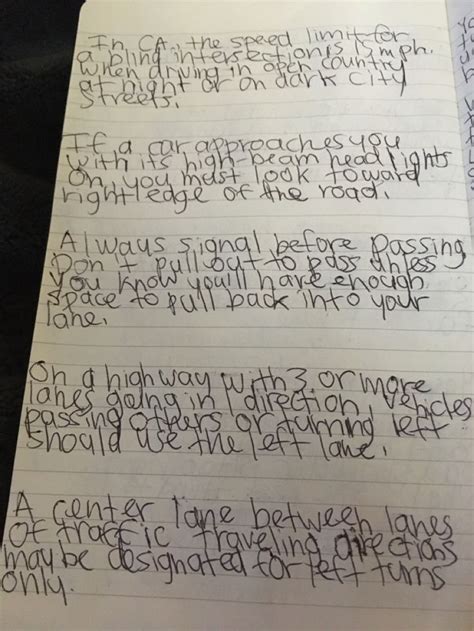 In CA, the speed limit for
a blind intersection is 15 mph.
When driving in open country
at night or on dark city
streets.
If a car approaches you
with its high-beam headlights
on, you must look toward
right edge of the road.
Always signal before passing
Don't pull out to pass unless
you know you'll have enough
space to pull back into your
lane.
On a highway with 3 or more
lanes going in 1 direction, vehicles
passing others or turning left
should use the left lane.
A center lane between lanes
of traffic traveling directions
may be designated for left turns
only.